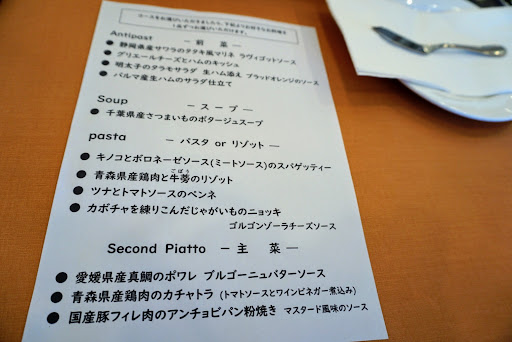 コースをお選びいただきましたら、下記よりお好きなお料理を
1品ずつお選びいただけます。
Antipost ー 前 菜 ー
● 静岡県産サワラのタタキ風マリネ ラヴィゴットソース
● グリエールチーズとハムのキッシュ
● 明太子のタラモサラダ 生ハム添え ブラッドオレンジのソース
● パルマ産生ハムのサラダ仕立て
Soup ー スープ ー
● 千葉県産さつまいものポタージュスープ
pasta ー パスタ or リゾット ー
● キノコとボロネーゼソース(ミートソース)のスパゲッティー
● 青森県産鶏肉と牛蒡のリゾット
ごぼう
● ツナとトマトソースのペンネ
● カボチャを練りこんだじゃがいものニョッキ
ゴルゴンゾーラチーズソース
Second Piatto ー 主 菜 ー
● 愛媛県産真鯛のポワレ ブルゴーニュバターソース
● 青森県産鶏肉のカチャトラ (トマトソースとワインビネガー煮込み)
● 国産豚フィレ肉のアンチョビパン粉焼き マスタード風味のソース